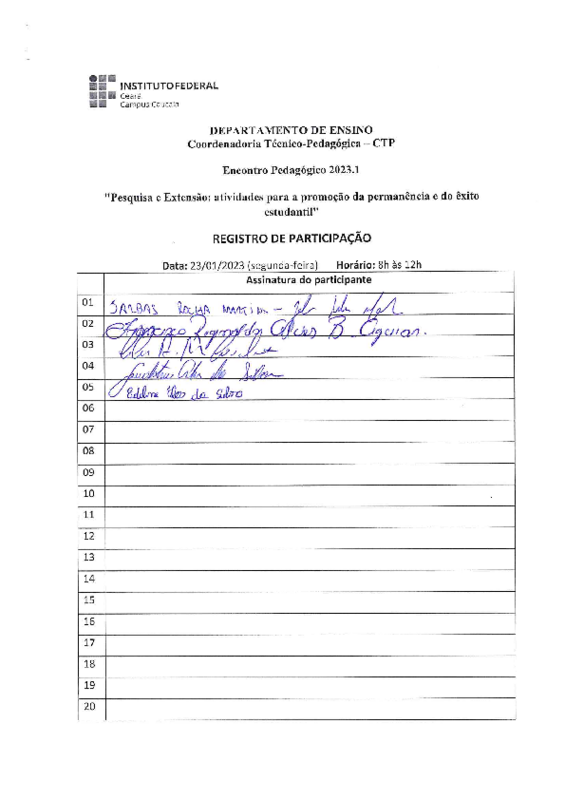 INSTITUTO FEDERAL
Ceará
Campus Caucaia
DEPARTAMENTO DE ENSINO
Coordenadoria Técnico-Pedagógica – CTP
Encontro Pedagógico 2023.1
"Pesquisa e Extensão: atividades para a promoção da permanência e do êxito
estudantil"
REGISTRO DE PARTICIPAÇÃO
Data: 23/01/2023 (segunda-feira) Horário: 8h às 12h
Assinatura do participante
01 JARBAS ROCHA MARTINS –
02 Francisco
03
04
05 da Silva
06
07
08
09
10
11
12
13
14
15
16
17
18
19
20